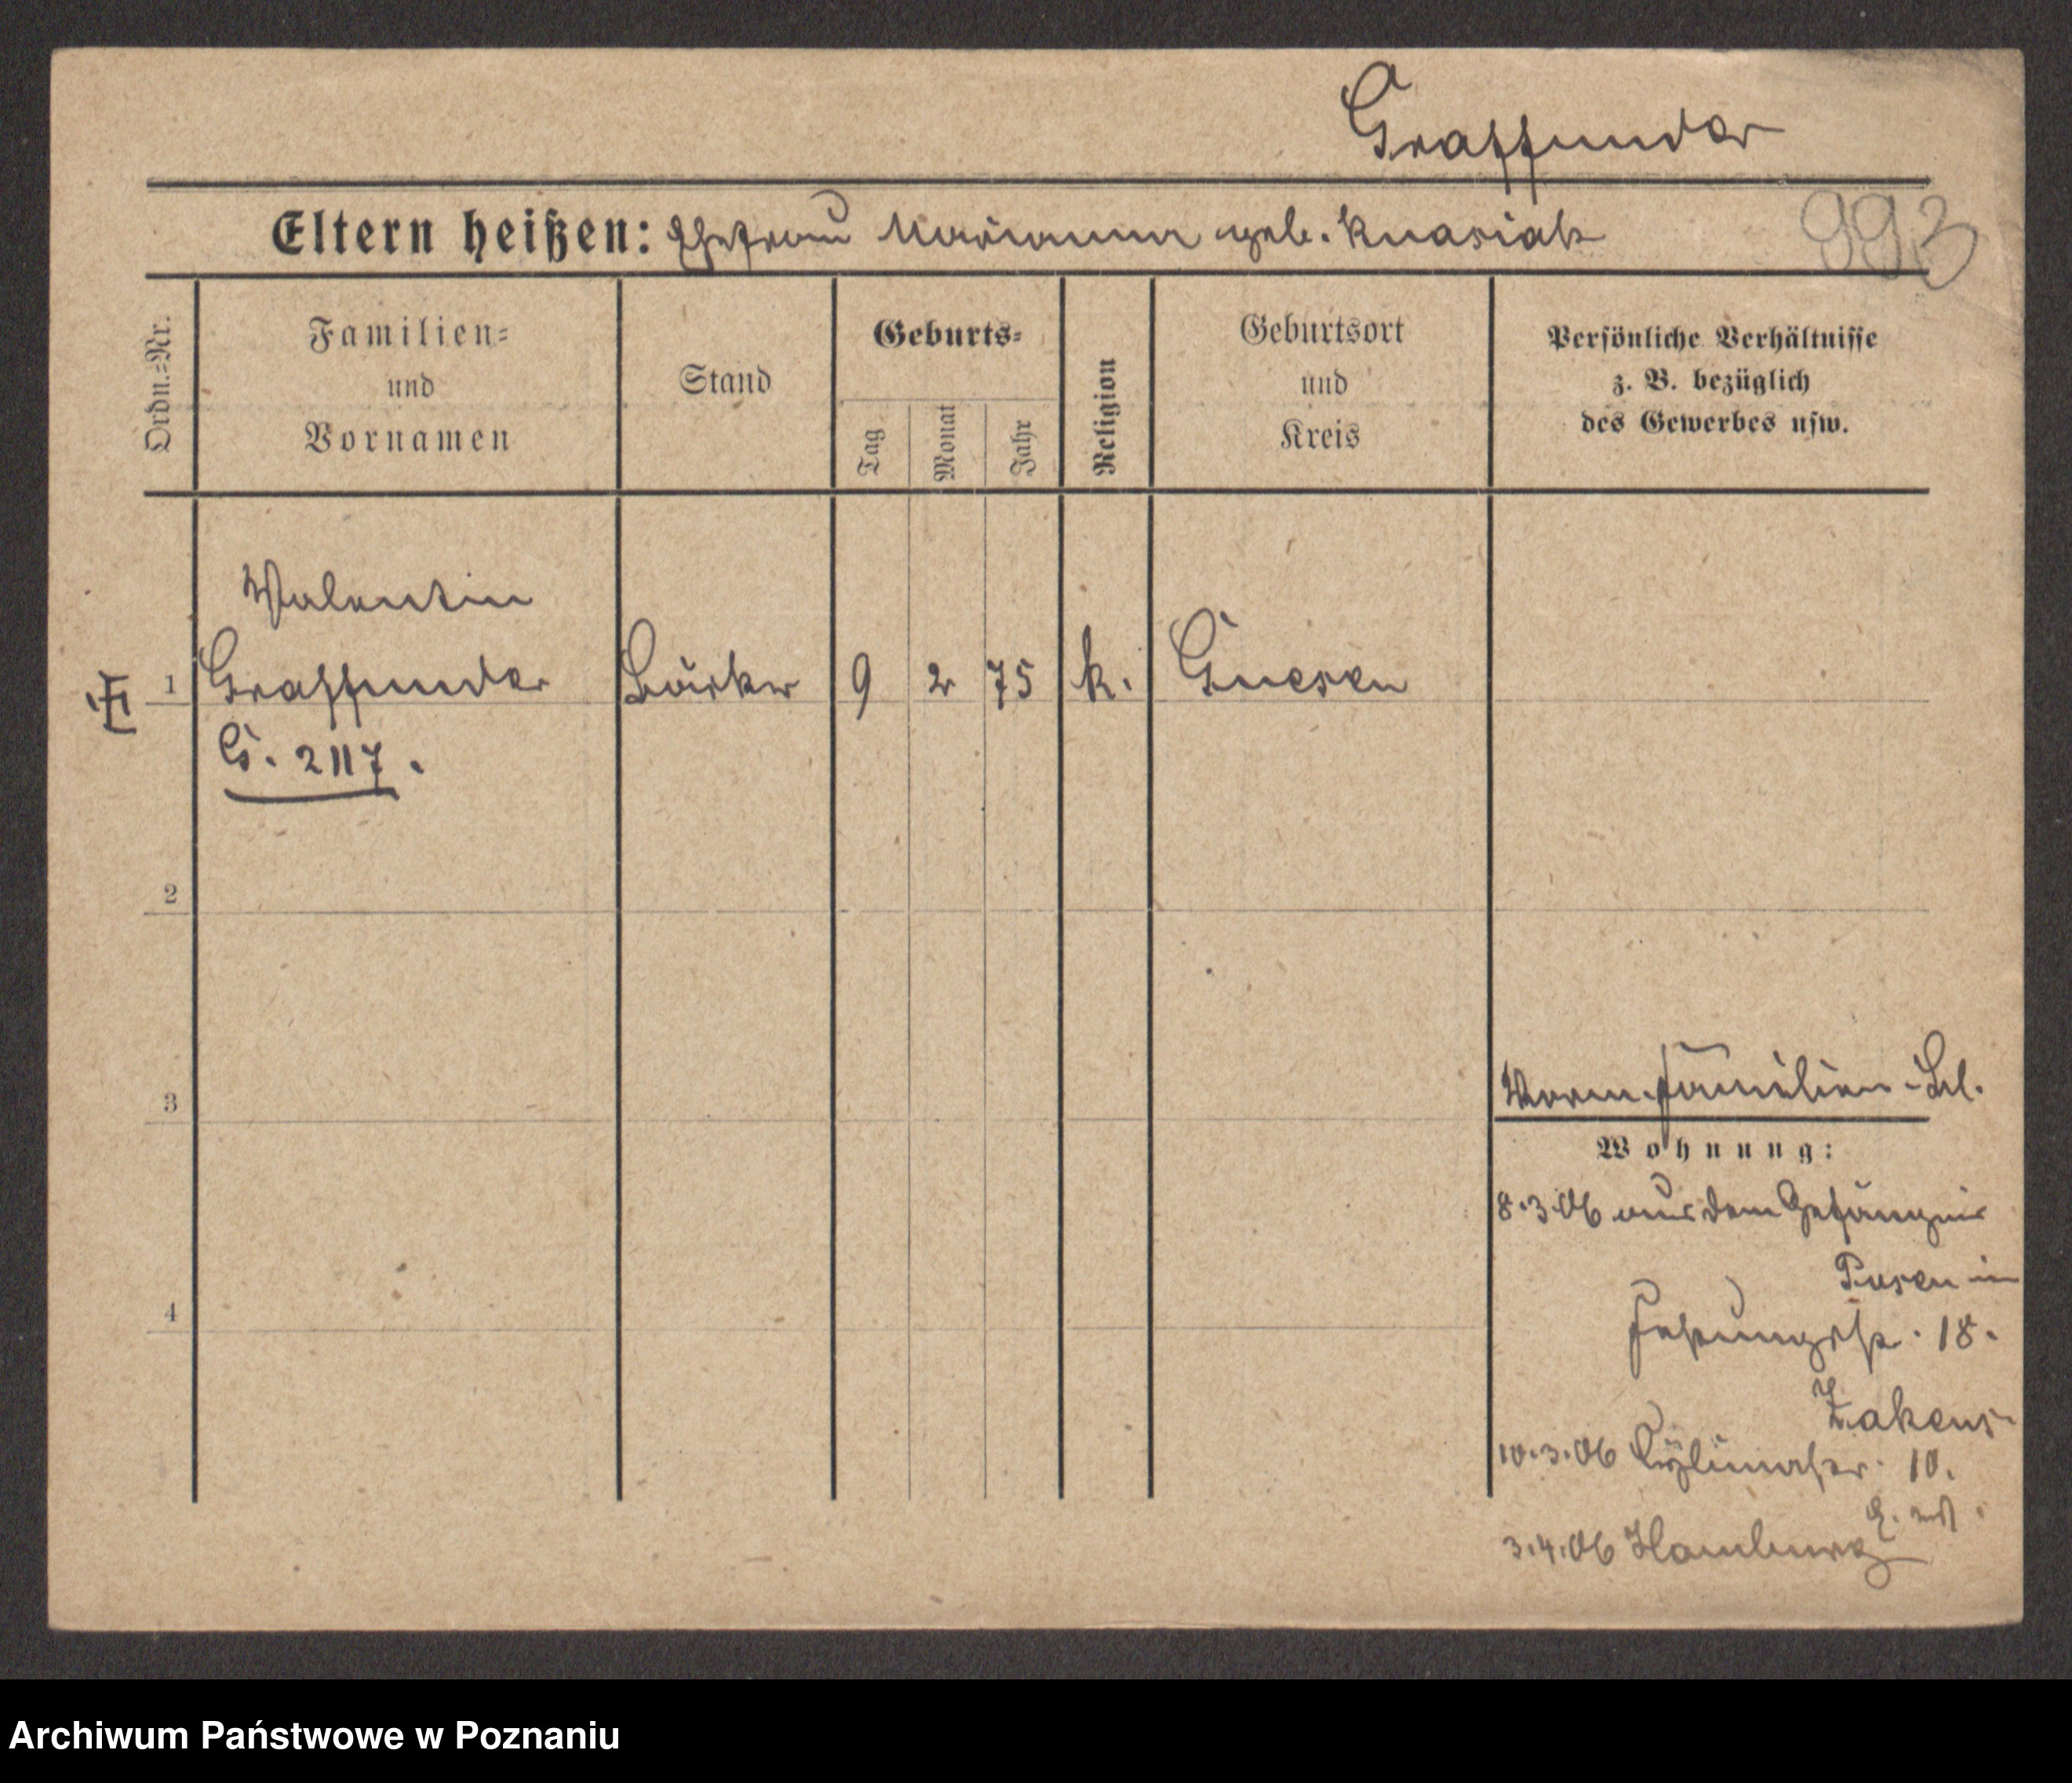 Graffunder
Eltern heißen: Ehefrau Marianna geb. Knasiak
993
Ordn.=Nr.
Familien=
und
Vornamen
Stand
Geburts=
Tag
Monat
Jahr
Religion
Geburtsort
und
Kreis
Persönliche Verhältnisse
z. B. bezüglich
des Gewerbes usw.
Valentin
1 Graffunder Bäcker 9 2 75 k. Gnesen
G. 2117.
2
3
Familien-Bl.
Wohnung:
8.3.06 aus dem Gefängnis
Posen in
4
18.
10.3.06 10.
3.4.06 Hamburg
Archiwum Państwowe w Poznaniu